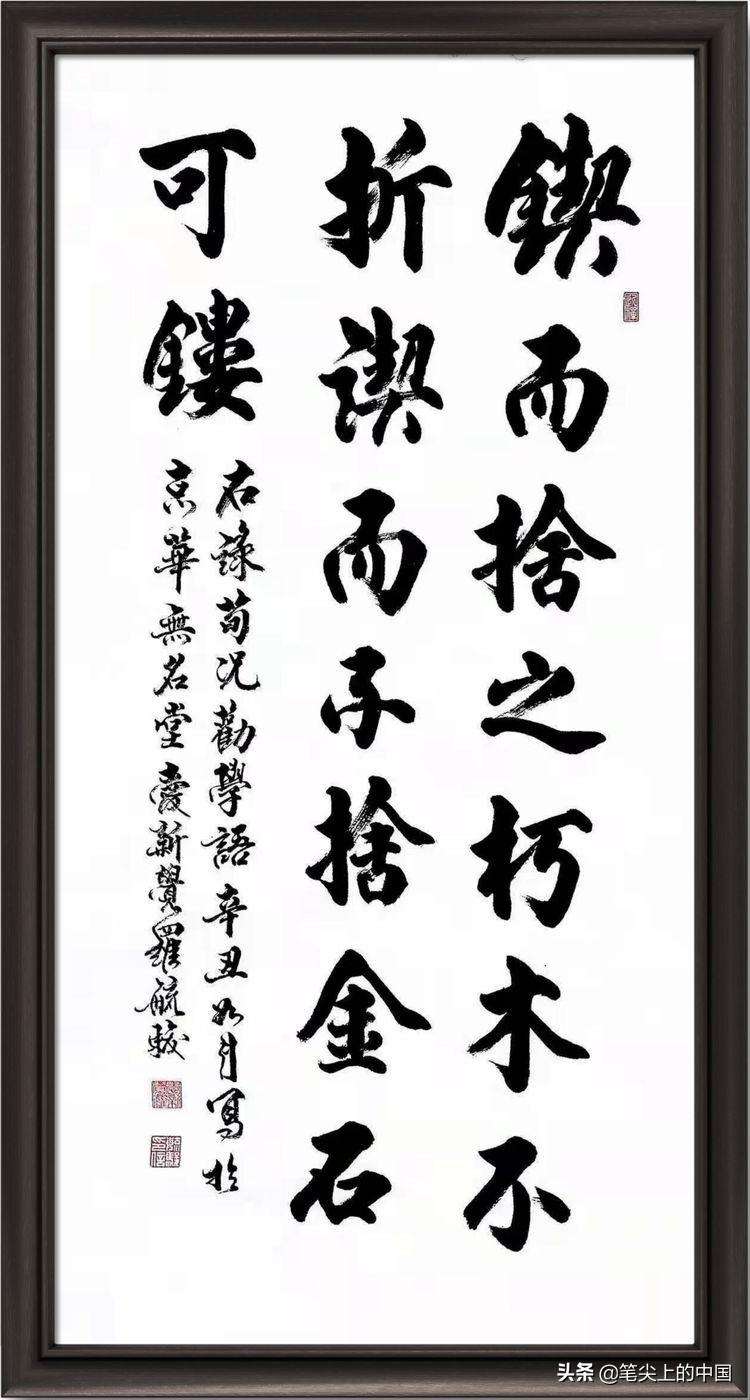 鍥而捨之朽木不
折鍥而不捨金石
可鏤
右錄荀況勸學語辛丑如月寫於
京華無名堂愛新覺羅毓駿
头条 @笔尖上的中国